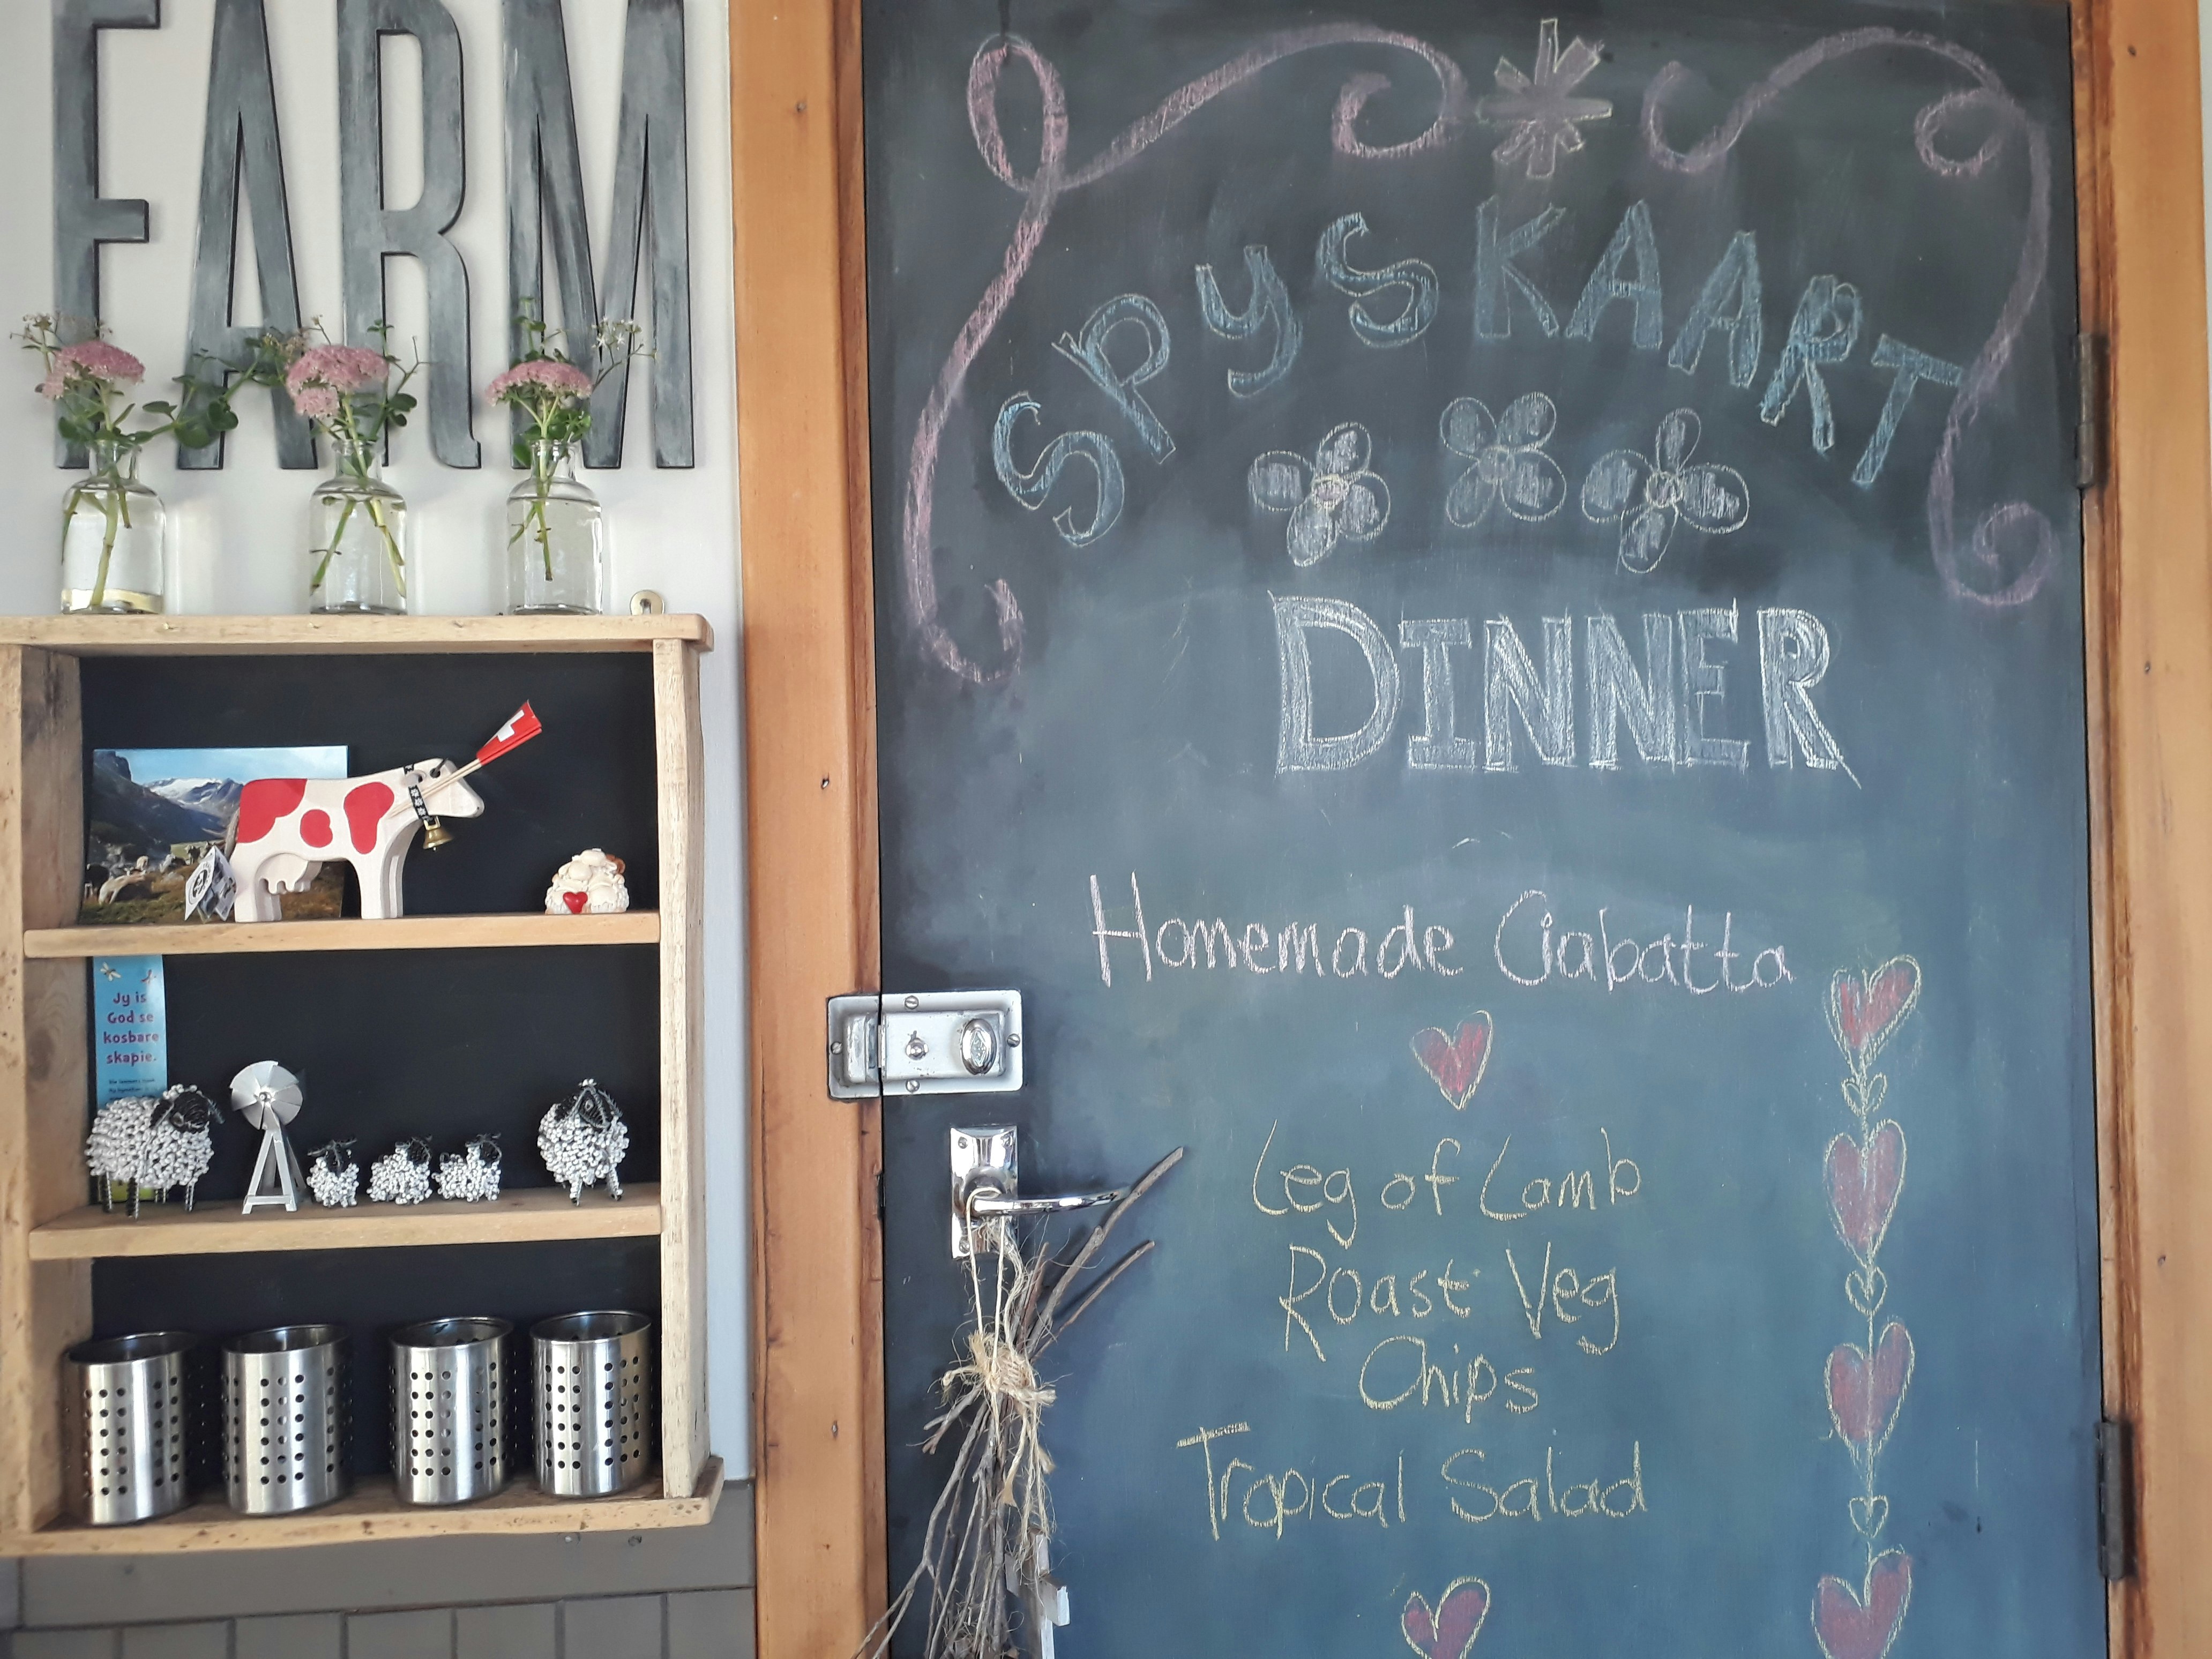 FARM
SPYSKAART
DINNER
Homemade Ciabatta
Leg of Lamb
Roast Veg
Chips
Tropical Salad
Jy is
God se
kosbare
skapie.